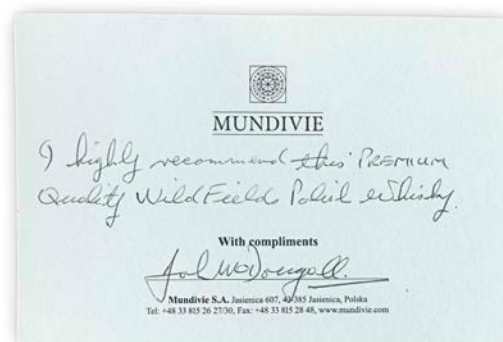 MUNDIVIE
I highly recommend this PREMIUM
Quality Wild Fields Polish Whisky.
With compliments
Mundivie S.A. Jasienica 607, 43-385 Jasienica, Polska
Tel: +48 33 815 26 27/30, Fax: +48 33 815 28 48, www.mundivie.com